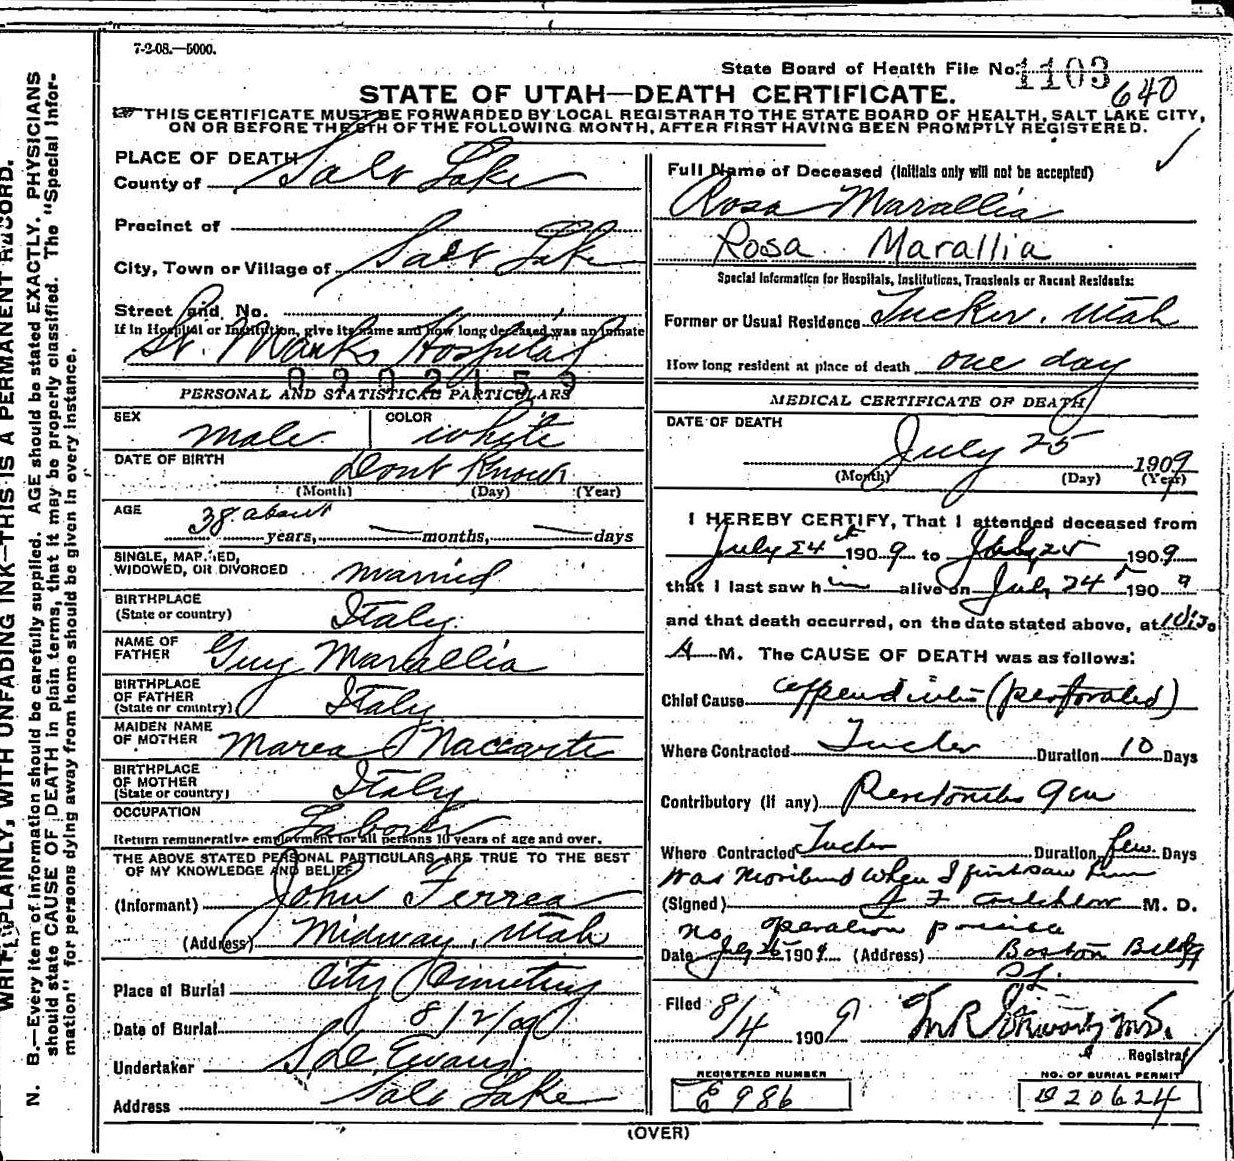 7-2-08.—5000.
State Board of Health File No. 1103
640
STATE OF UTAH—DEATH CERTIFICATE.
THIS CERTIFICATE MUST BE FORWARDED BY LOCAL REGISTRAR TO THE STATE BOARD OF HEALTH, SALT LAKE CITY,
ON OR BEFORE THE 5TH OF THE FOLLOWING MONTH, AFTER FIRST HAVING BEEN PROMPTLY REGISTERED.
WRITE PLAINLY, WITH UNFADING INK—THIS IS A PERMANENT RECORD.
N. B.—Every item of information should be carefully supplied. AGE should be stated EXACTLY. PHYSICIANS
should state CAUSE OF DEATH in plain terms, that it may be properly classified. The "Special Infor-
mation" for persons dying away from home should be given in every instance.
PLACE OF DEATH
County of Salt Lake
Precinct of
City, Town or Village of Salt Lake
Street and No.
If in Hospital or Institution, give its name and how long deceased was an inmate
St. Marks Hospital
0902159
PERSONAL AND STATISTICAL PARTICULARS
SEX male COLOR white
DATE OF BIRTH Dont Know
(Month) (Day) (Year)
AGE 38 about years, months, days
SINGLE, MARRIED,
WIDOWED, OR DIVORCED married
BIRTHPLACE
(State or country) Italy
NAME OF
FATHER Guy Marallia
BIRTHPLACE
OF FATHER
(State or country) Italy
MAIDEN NAME
OF MOTHER Marea Naccarte
BIRTHPLACE
OF MOTHER
(State or country) Italy
OCCUPATION Labor
Return remunerative employment for all persons 10 years of age and over.
THE ABOVE STATED PERSONAL PARTICULARS ARE TRUE TO THE BEST
OF MY KNOWLEDGE AND BELIEF
(Informant) John Ferrea
(Address) Midway, Utah
Place of Burial City Cemetery
Date of Burial 8/2/09
Undertaker Evans
Address Salt Lake
Full Name of Deceased (Initials only will not be accepted)
Rosa Marallia
Rosa Marallia
Special Information for Hospitals, Institutions, Transients or Recent Residents:
Former or Usual Residence Tucker, Utah
How long resident at place of death one day
MEDICAL CERTIFICATE OF DEATH
DATE OF DEATH
July 25 1909
(Month) (Day) (Year)
I HEREBY CERTIFY, That I attended deceased from
July 24th 1909 to July 25 1909
that I last saw him alive on July 24th 1909
and that death occurred, on the date stated above, at
A M. The CAUSE OF DEATH was as follows:
Chief Cause appendicitis (perforated)
Where Contracted Tucker Duration 10 Days
Contributory (if any) Peritonitis Gen
Where Contracted Tucker Duration few Days
Was Moribund when I first saw him
(Signed) M. D.
no operation
Date July 26 1909 (Address) Boston Bldg
Filed 8/4 1909
Registrar
REGISTERED NUMBER
E 986
NO. OF BURIAL PERMIT
20624
(OVER)